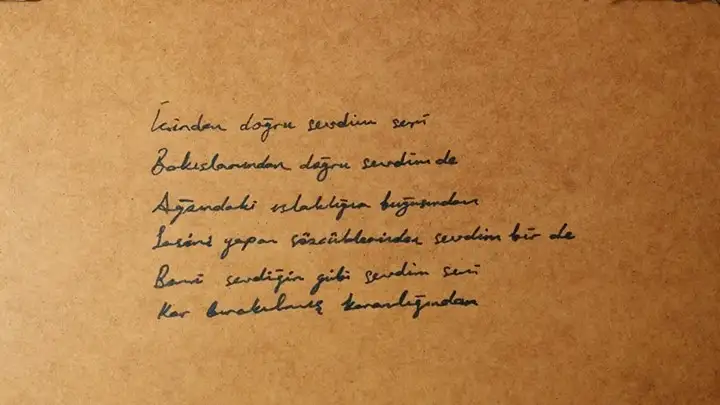 İçinden doğru sevdim seni
Bakışlarından doğru sevdim de
Ağzındaki ıslaklığın buğusundan
Sesini yapan sözcüklerinden sevdim bir de
Beni sevdiğin gibi sevdim seni
Kar bırakılmış karanlığından